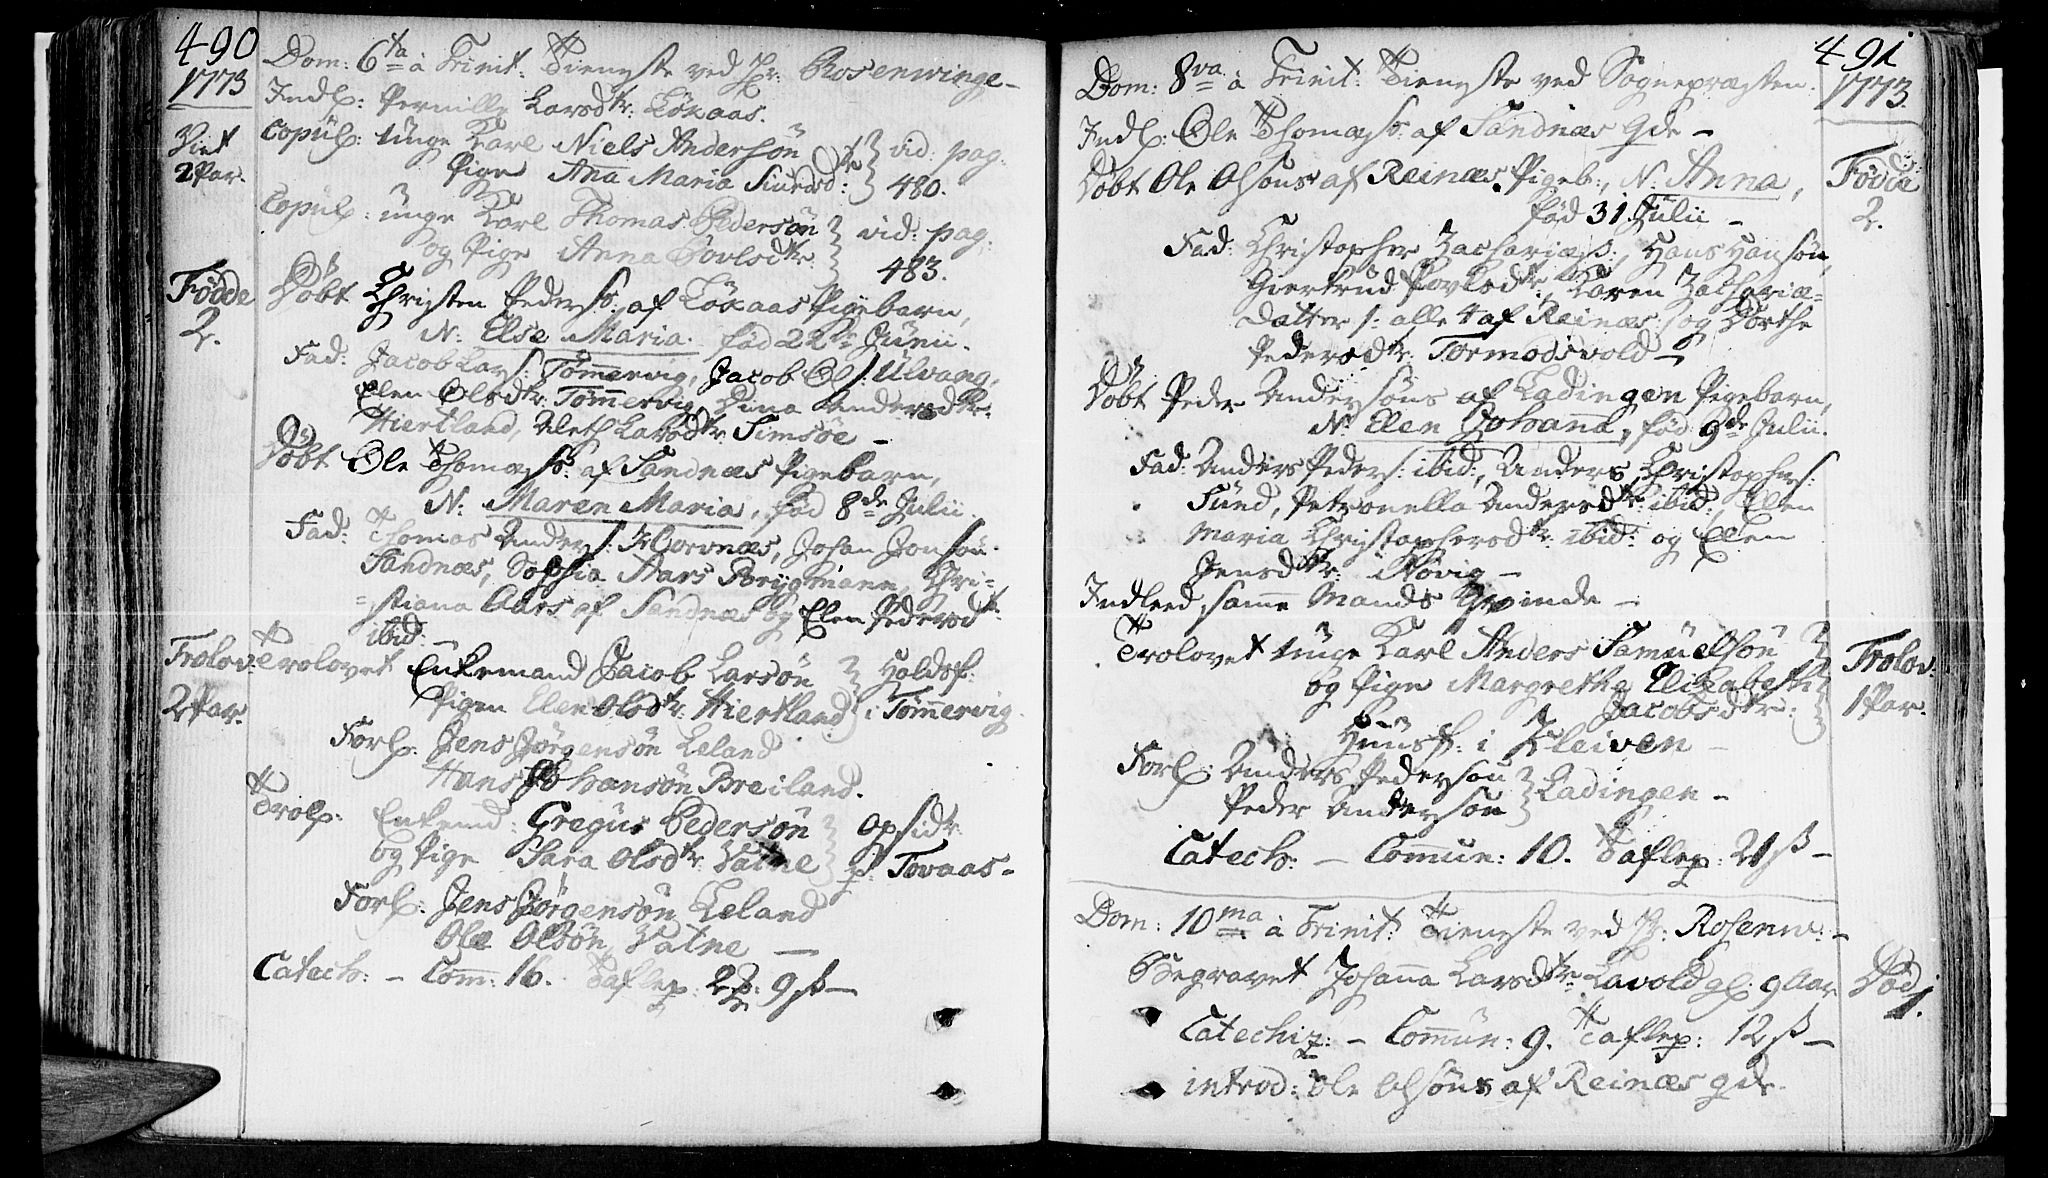 490
1773
Dom: 6ta à Trinit: Tieneste ved Hr: Rosenwinge -
Indl: Pernille Larsdtr: Løkaas.
Viet
2 Par.
Copul: unge Karl Niels Andersøn
Pige Ana Maria Siursdtr:
vid: pag:
480.
Copul: unge Karl Thomas Pedersøn
og Pige Anna Povlsdtr:
vid: pag:
483.
Fødde
2.
Døbt Christen Peders: af Løkaas Pigebarn,
N: Else Maria. fød 22de Junii.
Fad: Jacob Lars: Tømmervig, Jacob Ols: Ulvang,
Elen Olsdtr: Tømmervig, Dina Andersdtr:
Hiertland, Aleth Larsdtr: Simsøe -
Døbt Ole Thomæs: af Sandnæs Pigebarn,
N: Maren Maria, fød 8de Julii.
Fad: Thomas Anders: Korvnæs, Johan Jonsøn
Sandnæs, Sophia Aars Bergmann, Chri-
=stiana Aars af Sandnæs og Elen Pedersdtr:
ibid: -
Trolov:
2 Par.
Trolovet Enkemand Jacob Larsøn
Pigen Elen Olsdtr: Hiertland
Holdsf:
i Tømmervig.
Forl: Jens Jørgensøn Leland
Hans Johansøn Breiland.
Trol: Enkemd: Gregus Pedersøn
og Pige Sara Olsdtr: Vatne
Opsidr
p: Tovaas -
Forl: Jens Jørgensøn Leland
Ole Olsøn Vatne -
Catech: - Com: 16. Taflep: 2 9ß -
491
1773.
Dom: 8va à Trinit: Tieneste ved Sognepræsten.
Indl: Ole Thomæs: af Sandnæs Qde -
Fødde
2.
Døbt Ole Olsøns af Reinæs Pigeb:, N: Anna,
fød 31 Julii -
Fad: Christopher Zachariæs:, Hans Hansøn,
Giertrud Povlsdtr:, Karen Zachariæ-
datter /: alle 4 af Reinæs :/ og Dorthe
Pedersdtr: Tormodsvold -
Døbt Peder Andersøns af Ladingen Pigebarn,
N: Elen Johana, fød 9de Julii.
Fad: Anders Peders: ibid:, Anders Christophers:
Sund, Petronella Andersdtr: ibid:, Elen
Maria Christophersdtr: ibid: og Elen
Jensdtr: Røvig -
Indleed samme Mands Qvinde -
Trolov:
1 Par.
Trolovet unge Karl Anders Samuelsøn
og Pige Margrethe Elizabeth
Jacobsdtr:
Huusf: i Kleiven -
Forl: Anders Pedersøn
Peder Andersøn
Ladingen -
Catech: - Commun: 10. Taflep: 21ß -
Dom: 10ma à Trinit: Tieneste ved Hr: Rosenw: -
Død
1.
Begravet Johanna Larsdtr: Lavold gl: 9 Aar
Catechiz: - Comun: 9. Taflep: 12ß -
introd: Ole Olsøns af Reinæs qde.